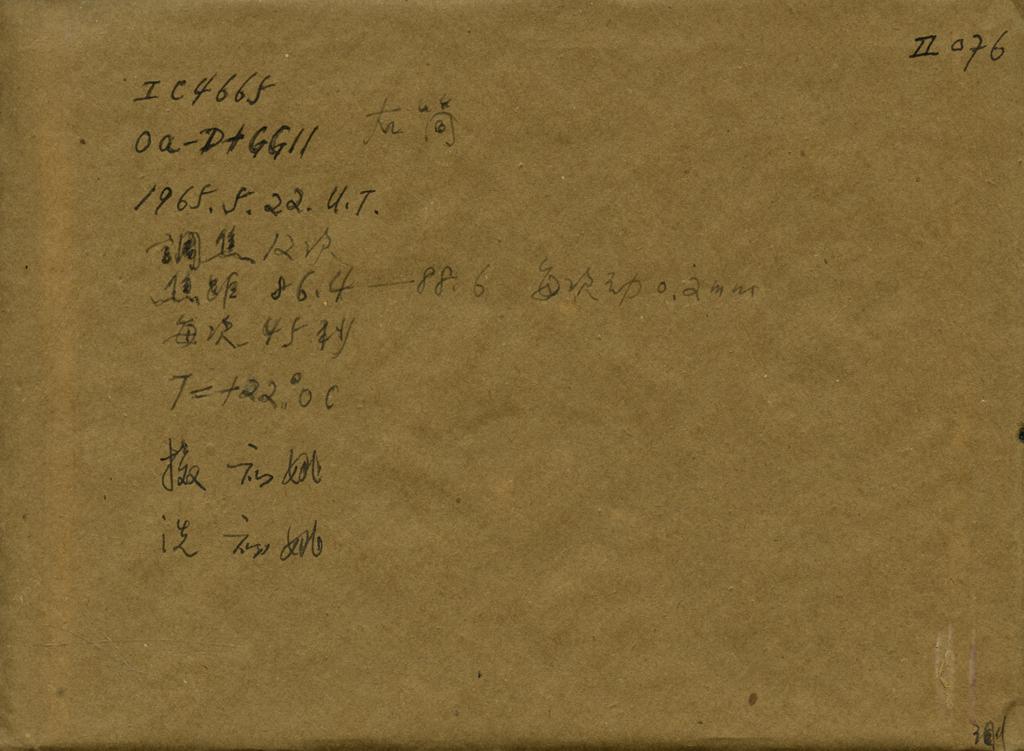 II 076
IC4665
0a-D+GG11 左筒
1965.5.22. U.T.
調焦 12次
焦距 86.4 — 88.6 每次动 0.2mm
每次 45秒
T=+22.°0 C
摄 姚
洗 姚